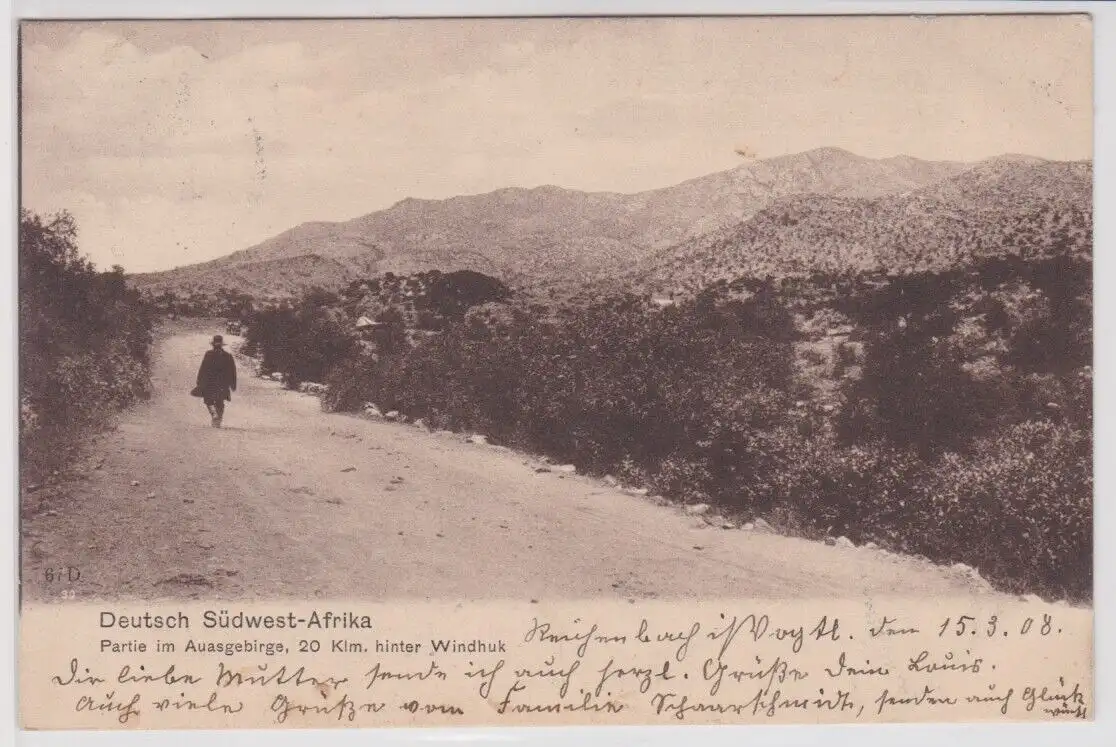 6/D
33
Deutsch Südwest-Afrika
Partie im Auasgebirge, 20 Klm. hinter Windhuk
Reichenbach i/Vogtl. den 15.3.08.
Dir liebe Mutter sende ich auch herzl. Grüße Dein Louis.
Auch viele Grüße vom Familie Schaarschmidt, senden auch Glück